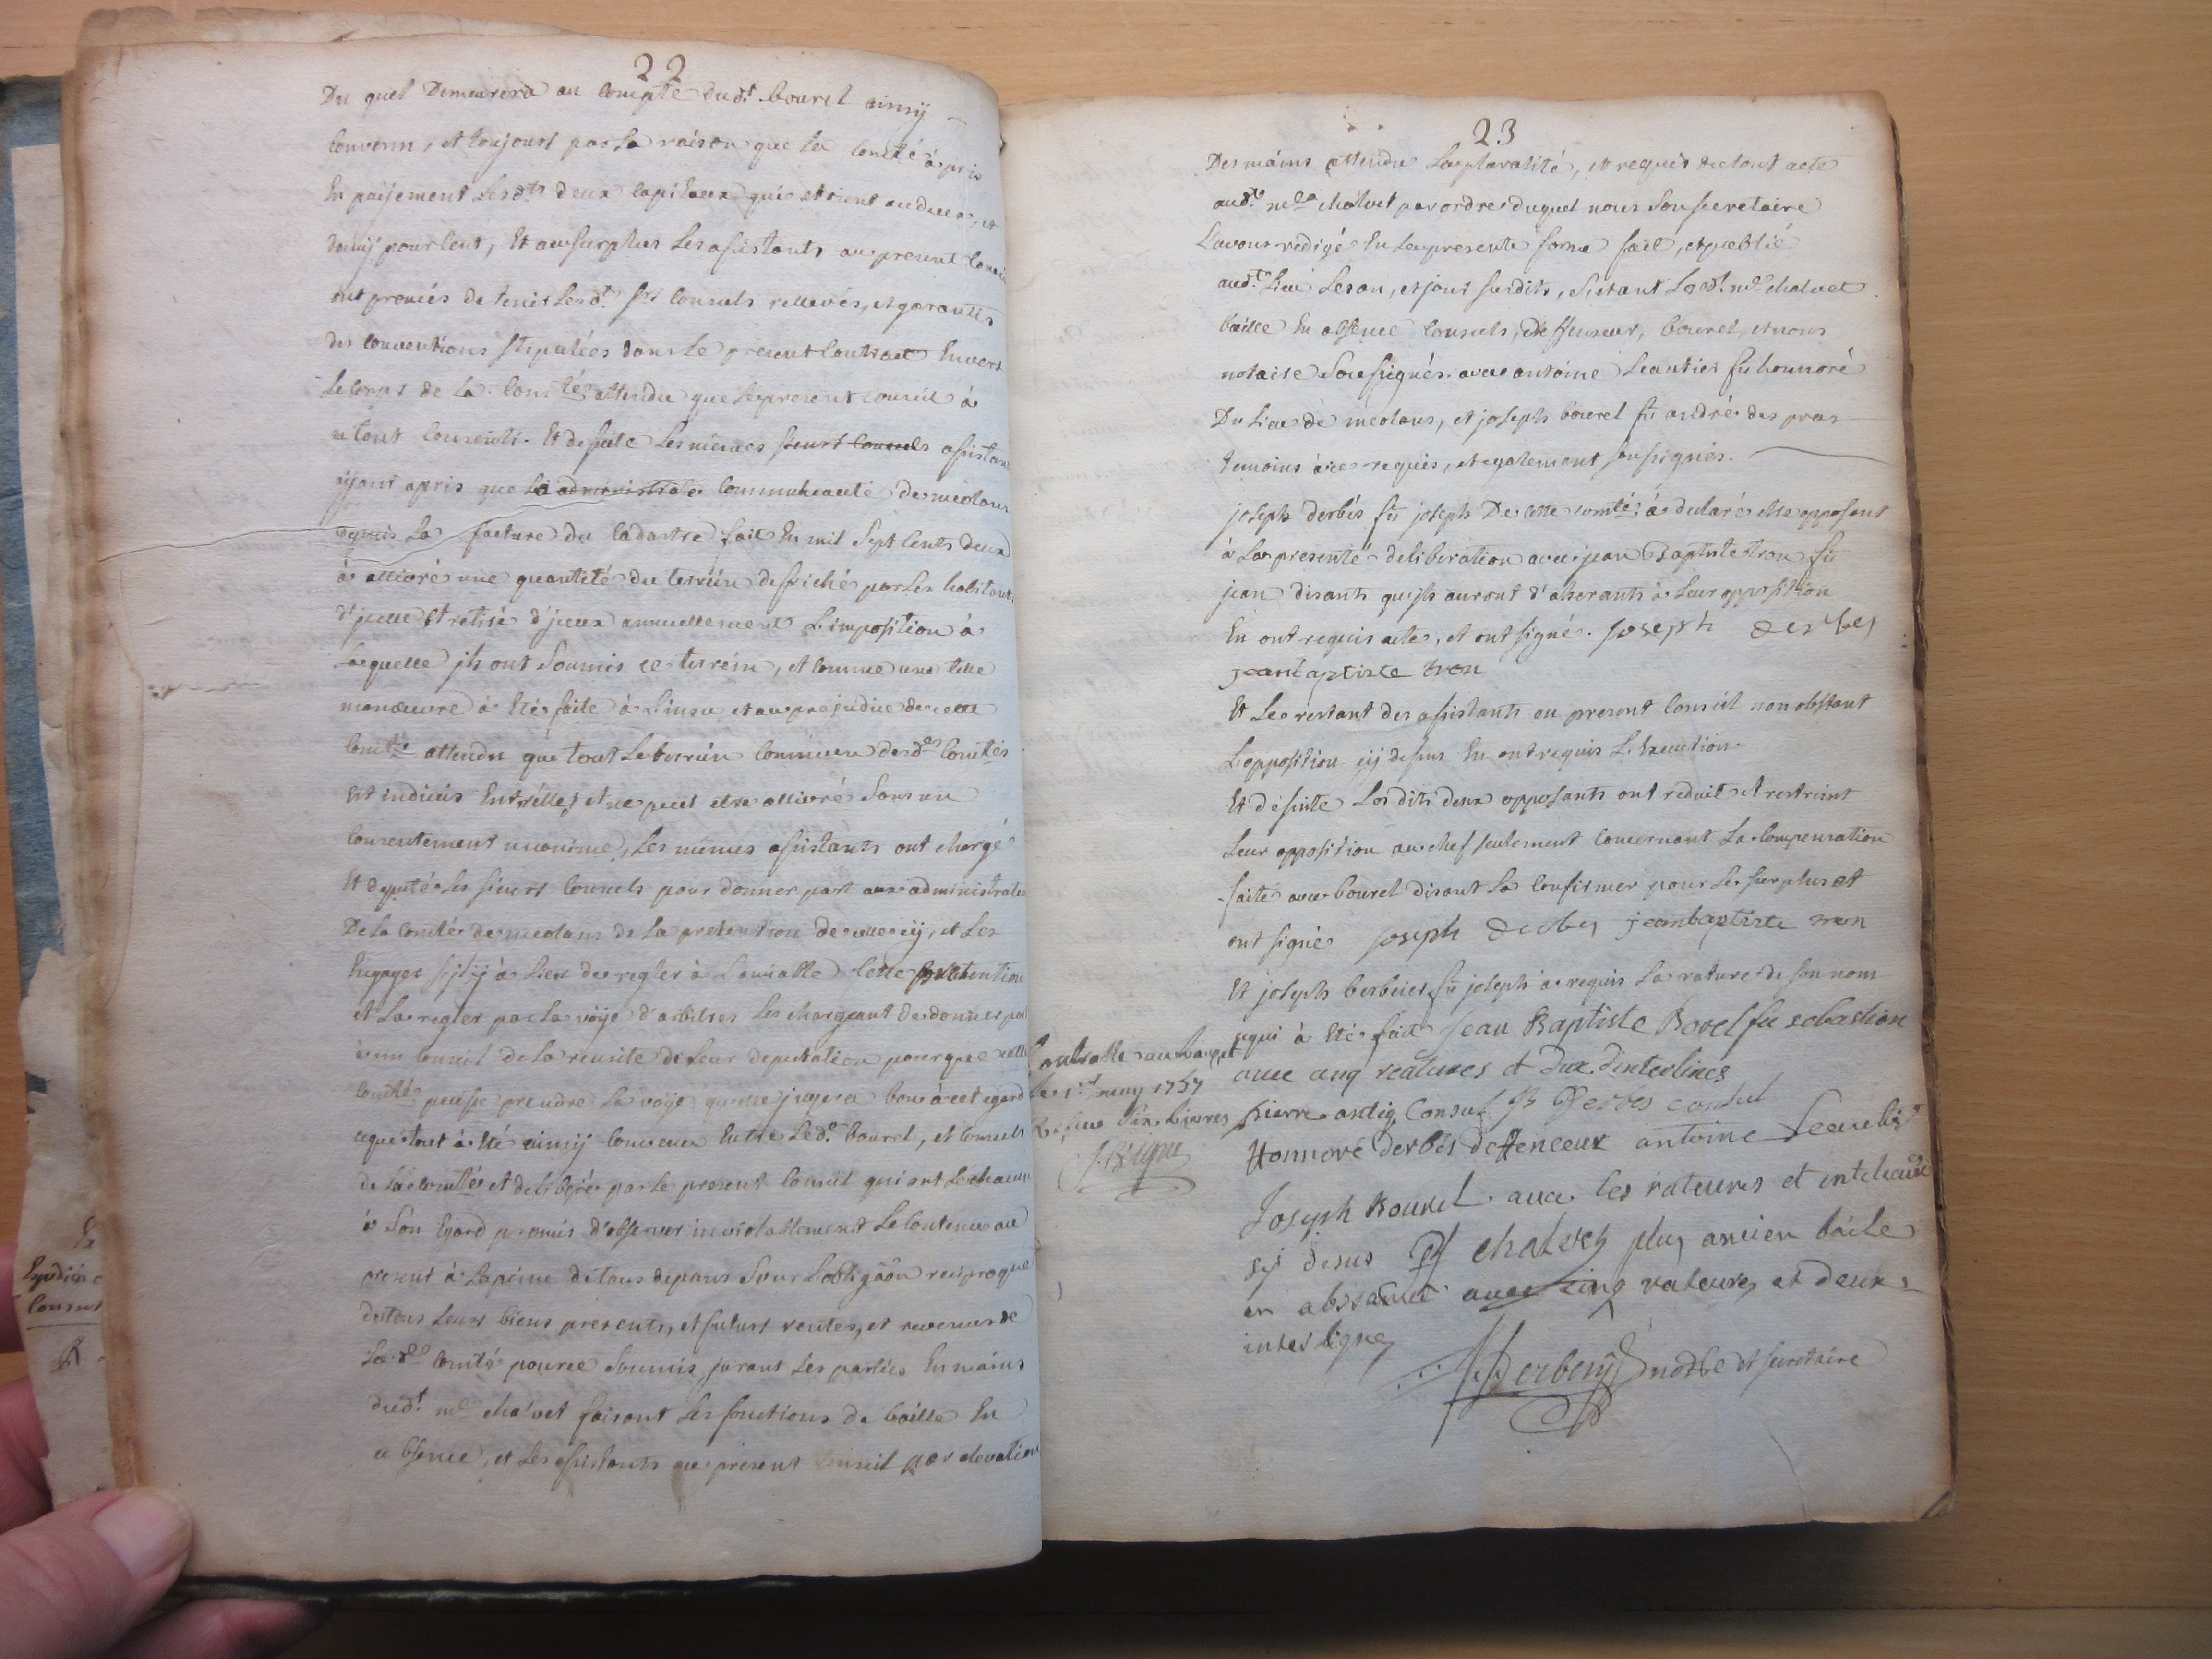 22
Du quel Demeurera au compte dud.t bourel ainsÿ
Convenu, et toujours par la raison que la com̃té à pris
En païjement lesd.ts deux capitaux qui etoient au deux, et
demÿ pour cent, Et au surplus les assistants au present Conseil
ont promis de tenir lesd.t srs Consuls rellevés, et garantis
des conventions stipulées dans le present Contract Envers
le Corps de la Com̃té attendu que le present conseil à
a tout consenti. Et de suite les mêmes sieurs consuls assistants
aÿant apris que la administrate Communauté de meolans
depuis la facture du Cadastre fait En mil Sept Cents deux
à allivré une quantité du terrein defriché par les habitants
d'jcelle et retiré d'jceux annuellement l'imposition à
laquelle jls ont Soumis ce terrein, et comme une telle
manœuvre à eté faite à l'insu et au prejudice de cette
Com̃té attendu que tout le terrein commun desd.es Com̃tés
Est indivis Entr'elles, et ne peut etre allivré Sans un
consentement unanime, les mêmes assistants ont chargé
Et deputé les sieurs Consuls pour donner part aux administrateurs
De la Com̃té de meolans de la pretention de celle cÿ, et les
Engager s'jl ÿ à lieu de regler à l'amiable Cette pretention
et la regler par la voÿe d'arbitres les chargeant de donner part
à un Conseil de la reusite de leur deputation pour que cette
Com̃té puisse prendre la voÿe qu'elle jugera bon à cet egard
ce que tout à eté ainsÿ Convenu Entre led.t bourel, et Consuls
de la Com̃té et deliberé par le present Conseil qui ont chacun
à Son Egard promis d'observer inviolablement le Contenu au
present à la peine de tous depans Sous l'obligãon reciproque
de tous leurs biens presents, et futurs rentes, et revenus de
lad.e Com̃té pour ce Soumis, jurant les parties En mains
dud.t m.e chalvet faisant les fonctions de baille En
absence, et les assistants au present Conseil par elevation
Expedié
Consuls
23
Des mains attendu la pluralité, et requis de tout acte
aud.t m.e chalvet par ordre duquel nous Sousecretaire
l'avons redigé En la presente forme fait, et publié
aud.t lieu les an, et jour susdits, Setant led.t m.e chalvet
baille En absence Consuls, deffenseur, bourel, et nous
notaire Sousignés avec antoine leautier fû honnoré
Du lieu de meolans, et joseph bourel fû andré des pras
temoins à ce requis, et egalement sousignés.
joseph derbés fû joseph De cette com̃té à declaré être opposant
à la presente deliberation avec jean Baptiste tron fû
jean disants qu'jls auront d'aherants à leur opposition
En ont requis acte, et ont signé. joseph derbes
jeanbaptiste tron
Et le restant des assistants au present Conseil non obstant
l'opposition cÿ dessus En ont requis l'Execution
Et de suite les dits deux opposants ont reduit et restreint
leur opposition au chef seulement concernant la compensation
faite avec bourel disant la confirmer pour le surplus et
ont signé joseph derbes jeanbaptiste tron
Et joseph berbeiet fû joseph à requis la rature de son nom
ce qui à eté fait Jean Baptiste Borel fû sebastien
avec cinq ratures et dux d'interlines
pierre antiq Consul JB Derbes consul
Honnoré derbés deffenceur antoine Leautier
Joseph Bourel avec les ratures et interligne
sy desus chalvet plus ancien baile
en absance avec cinq ratures et deux
interligne
Derbeys notre et secretaire
Controlle au Lauzet
le 1.er may 1757
Reçu Six Livres